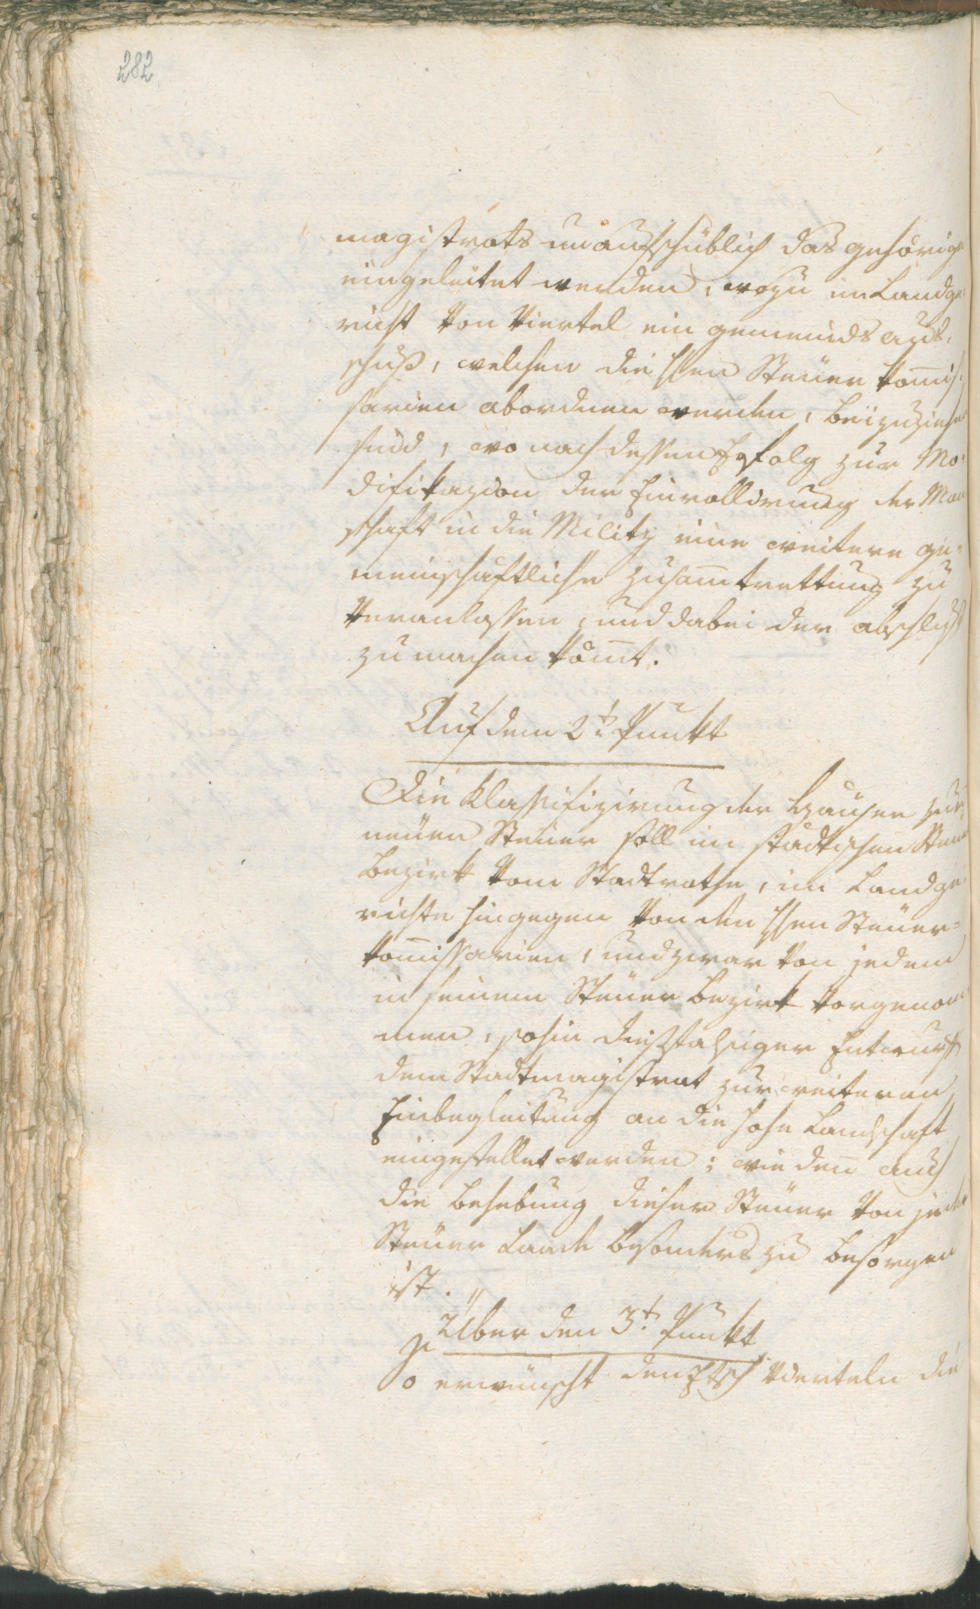 282
magistrats unaufschüblich das gehörige
eingeleitet werden, wozu im Landge
richt von Viertel ein gemeinds aus,
schuß, welchen die Hhen Steuer kom̅is,
sarien abordnen werden, beizuziehen
sind, wo nach dessen Erfolg zur Mo,
difikazion der Einrollirung der Man
schaft in die Militz eine weitere ge=
meinschaftliche Zusam̅trettung zu
veranlassen, und dabei der abschluß
zu machen kom̅t.
Auf dem 2t. Punkt
Die Klassifizirung der Häuser zur
neuen Steuer soll im städtischen Steuer
Bezirk vom Stadtrathe, im Landge
richte hingegen von den Hhen Steuer=
kom̅issarien, und zwar von jedem
in seinem Steuer bezirk vorgenom
men, sohin diesfälliger Entwurf
dem Stadtmagistrat zur weiteren
Einbegleitung an die hohe Landschaft
eingestellet werden; wie den̅ auch
die Behebung dieser Steuer von jeder
Steuer Lande besonders zu besorgen
ist.
Über den 3t. Punkt
So erwünscht den Vierteln die